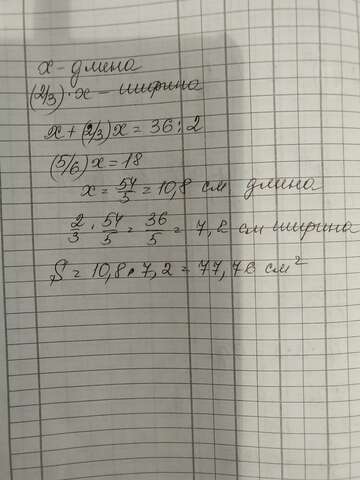 x - длина
(2/3)·x - ширина
x + (2/3)x = 36:2
(5/6)x = 18
x = 54/5 = 10,8 см длина
2/3 · 54/5 = 36/5 = 7,2 см ширина
S = 10,8 · 7,2 = 77,76 см²